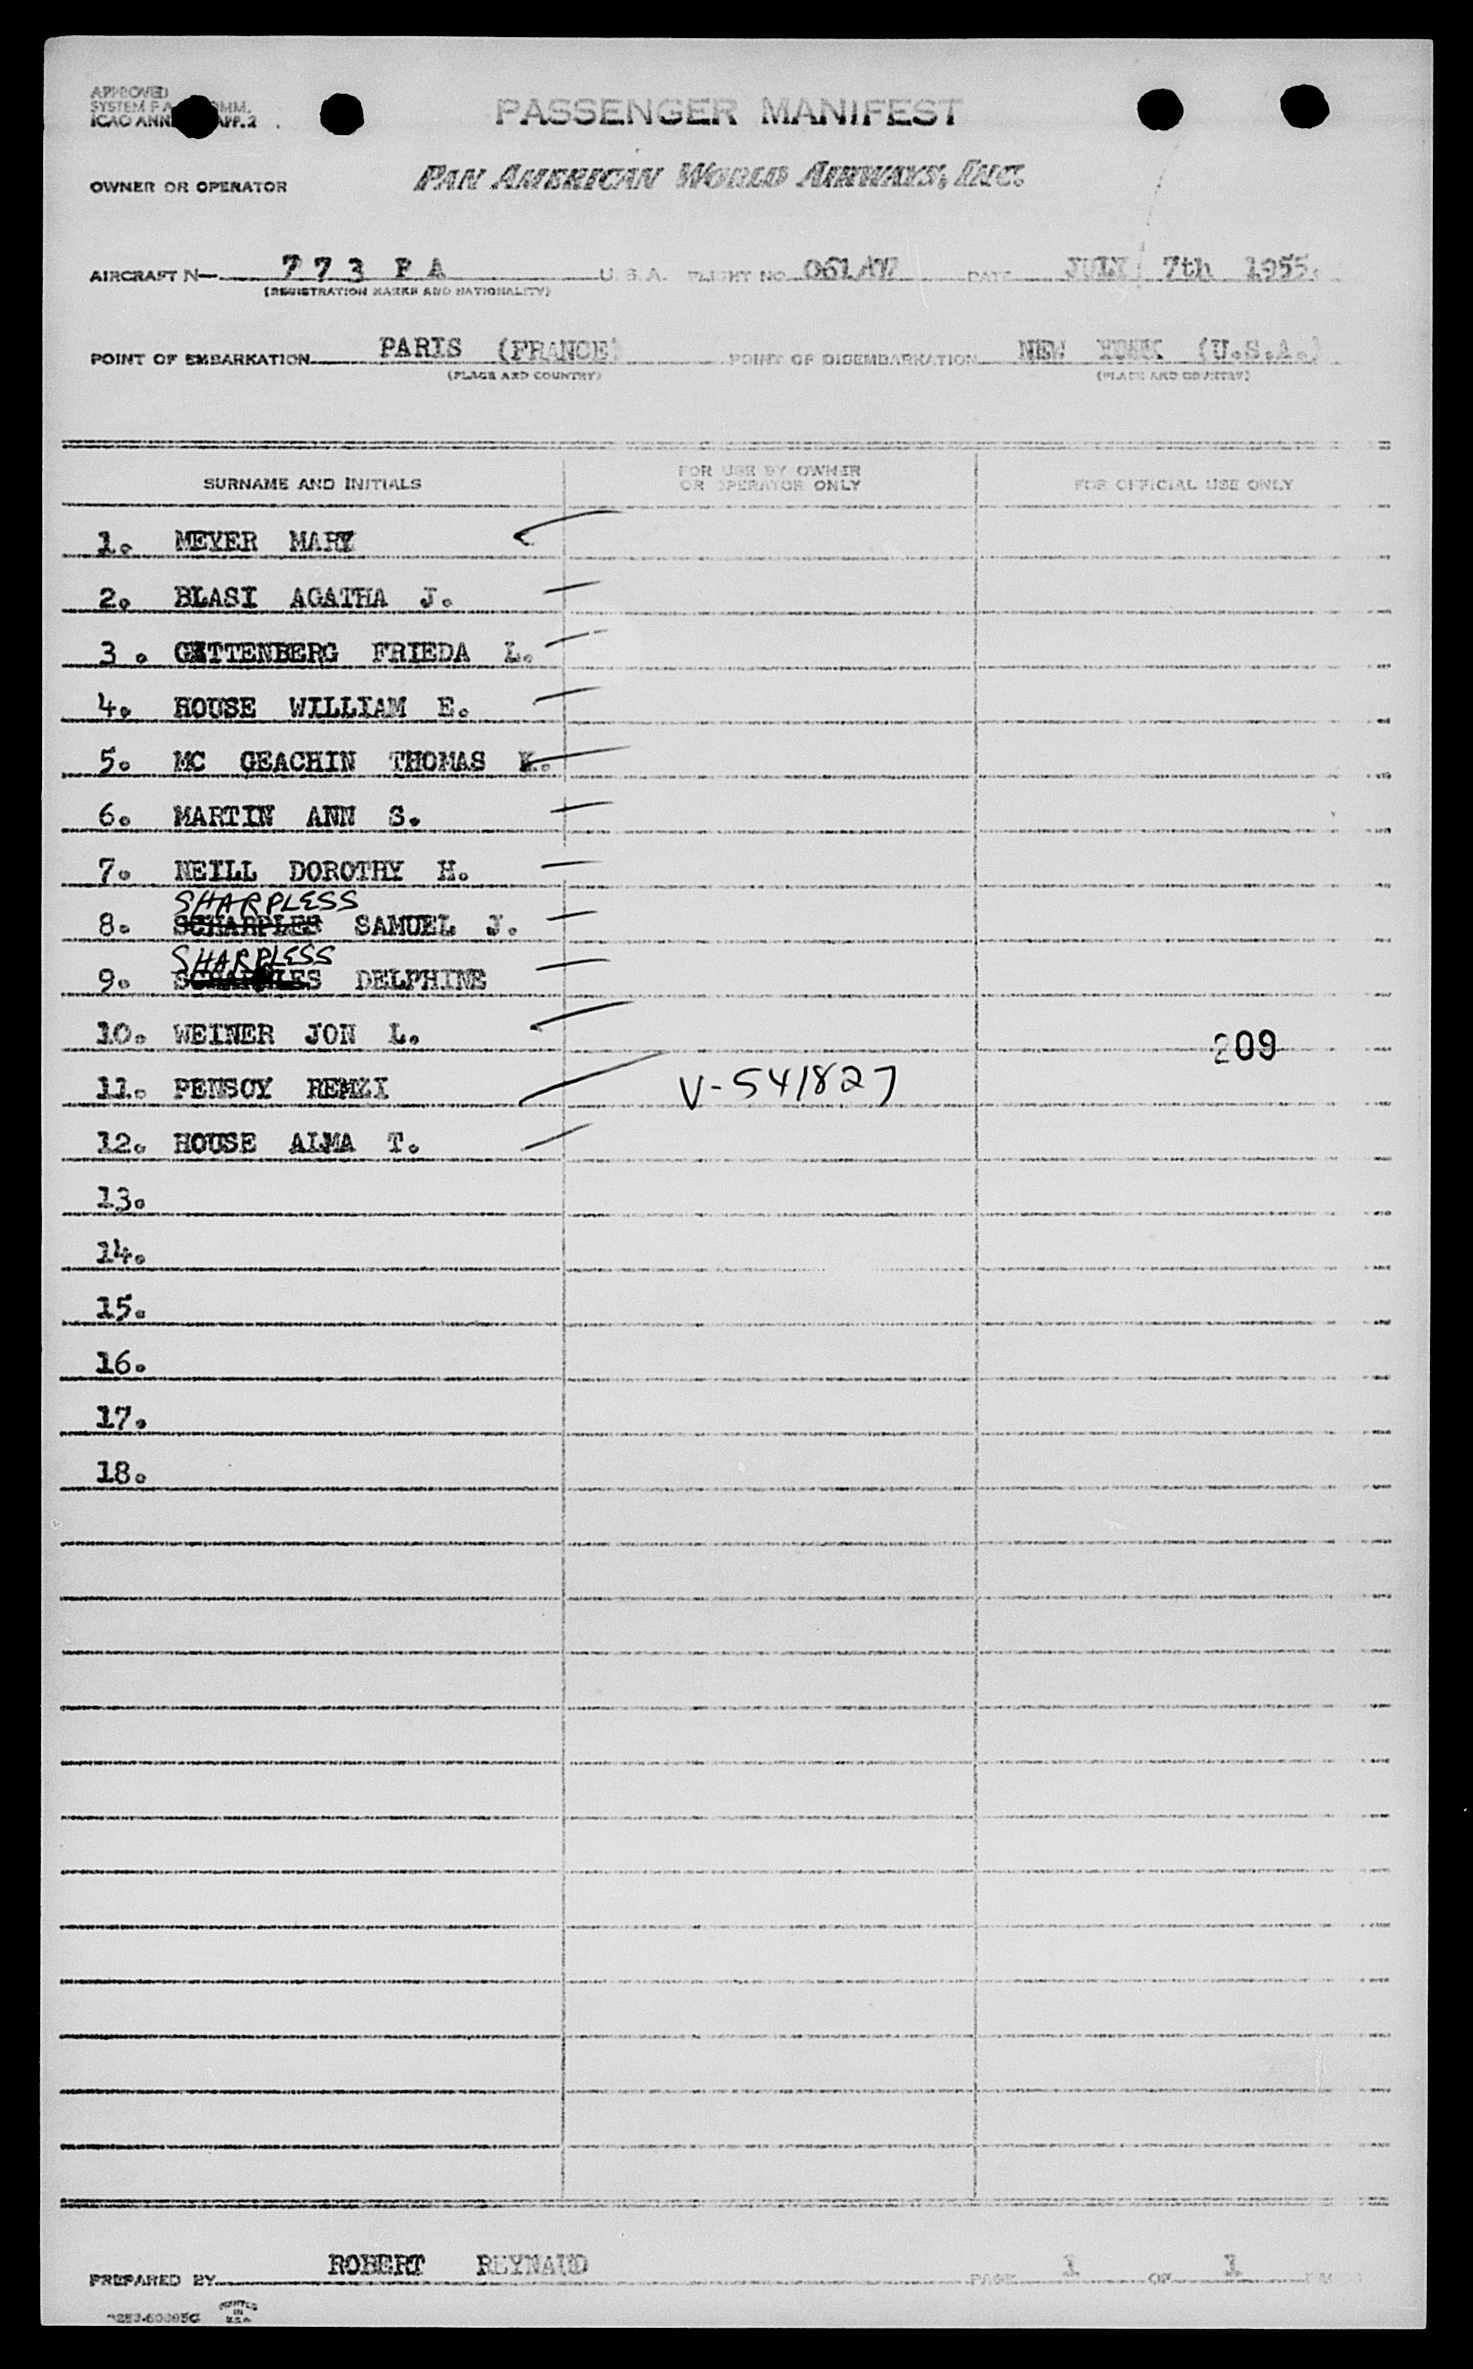 APPROVED
SYSTEM F A COMM.
ICAO ANN APP. 2
PASSENGER MANIFEST
OWNER OR OPERATOR PAN AMERICAN WORLD AIRWAYS, INC.
AIRCRAFT N- 773 PA U. S. A. FLIGHT NO. 061/07 DATE JULY 7th 1955.
(REGISTRATION MARKS AND NATIONALITY)
POINT OF EMBARKATION PARIS (FRANCE) POINT OF DISEMBARKATION NEW YORK (U.S.A.)
(PLACE AND COUNTRY) (PLACE AND COUNTRY)
SURNAME AND INITIALS FOR USE BY OWNER OR OPERATOR ONLY FOR OFFICIAL USE ONLY
1. MEYER MARY
2. BLASI AGATHA J.
3. GETTENBERG FRIEDA L.
4. HOUSE WILLIAM E.
5. MC GEACHIN THOMAS
6. MARTIN ANN S.
7. NEILL DOROTHY H.
SHARPLESS
8. SCHARPLES SAMUEL J.
SHARPLESS
9. DELPHINE
10. WEINER JON L.
209
11. PENSOY REMZI V-541827
12. HOUSE ALMA T.
13.
14.
15.
16.
17.
18.
PREPARED BY ROBERT REYNAUD PAGE 1 OF 1 PAGES
PRINTED IN U.S.A.